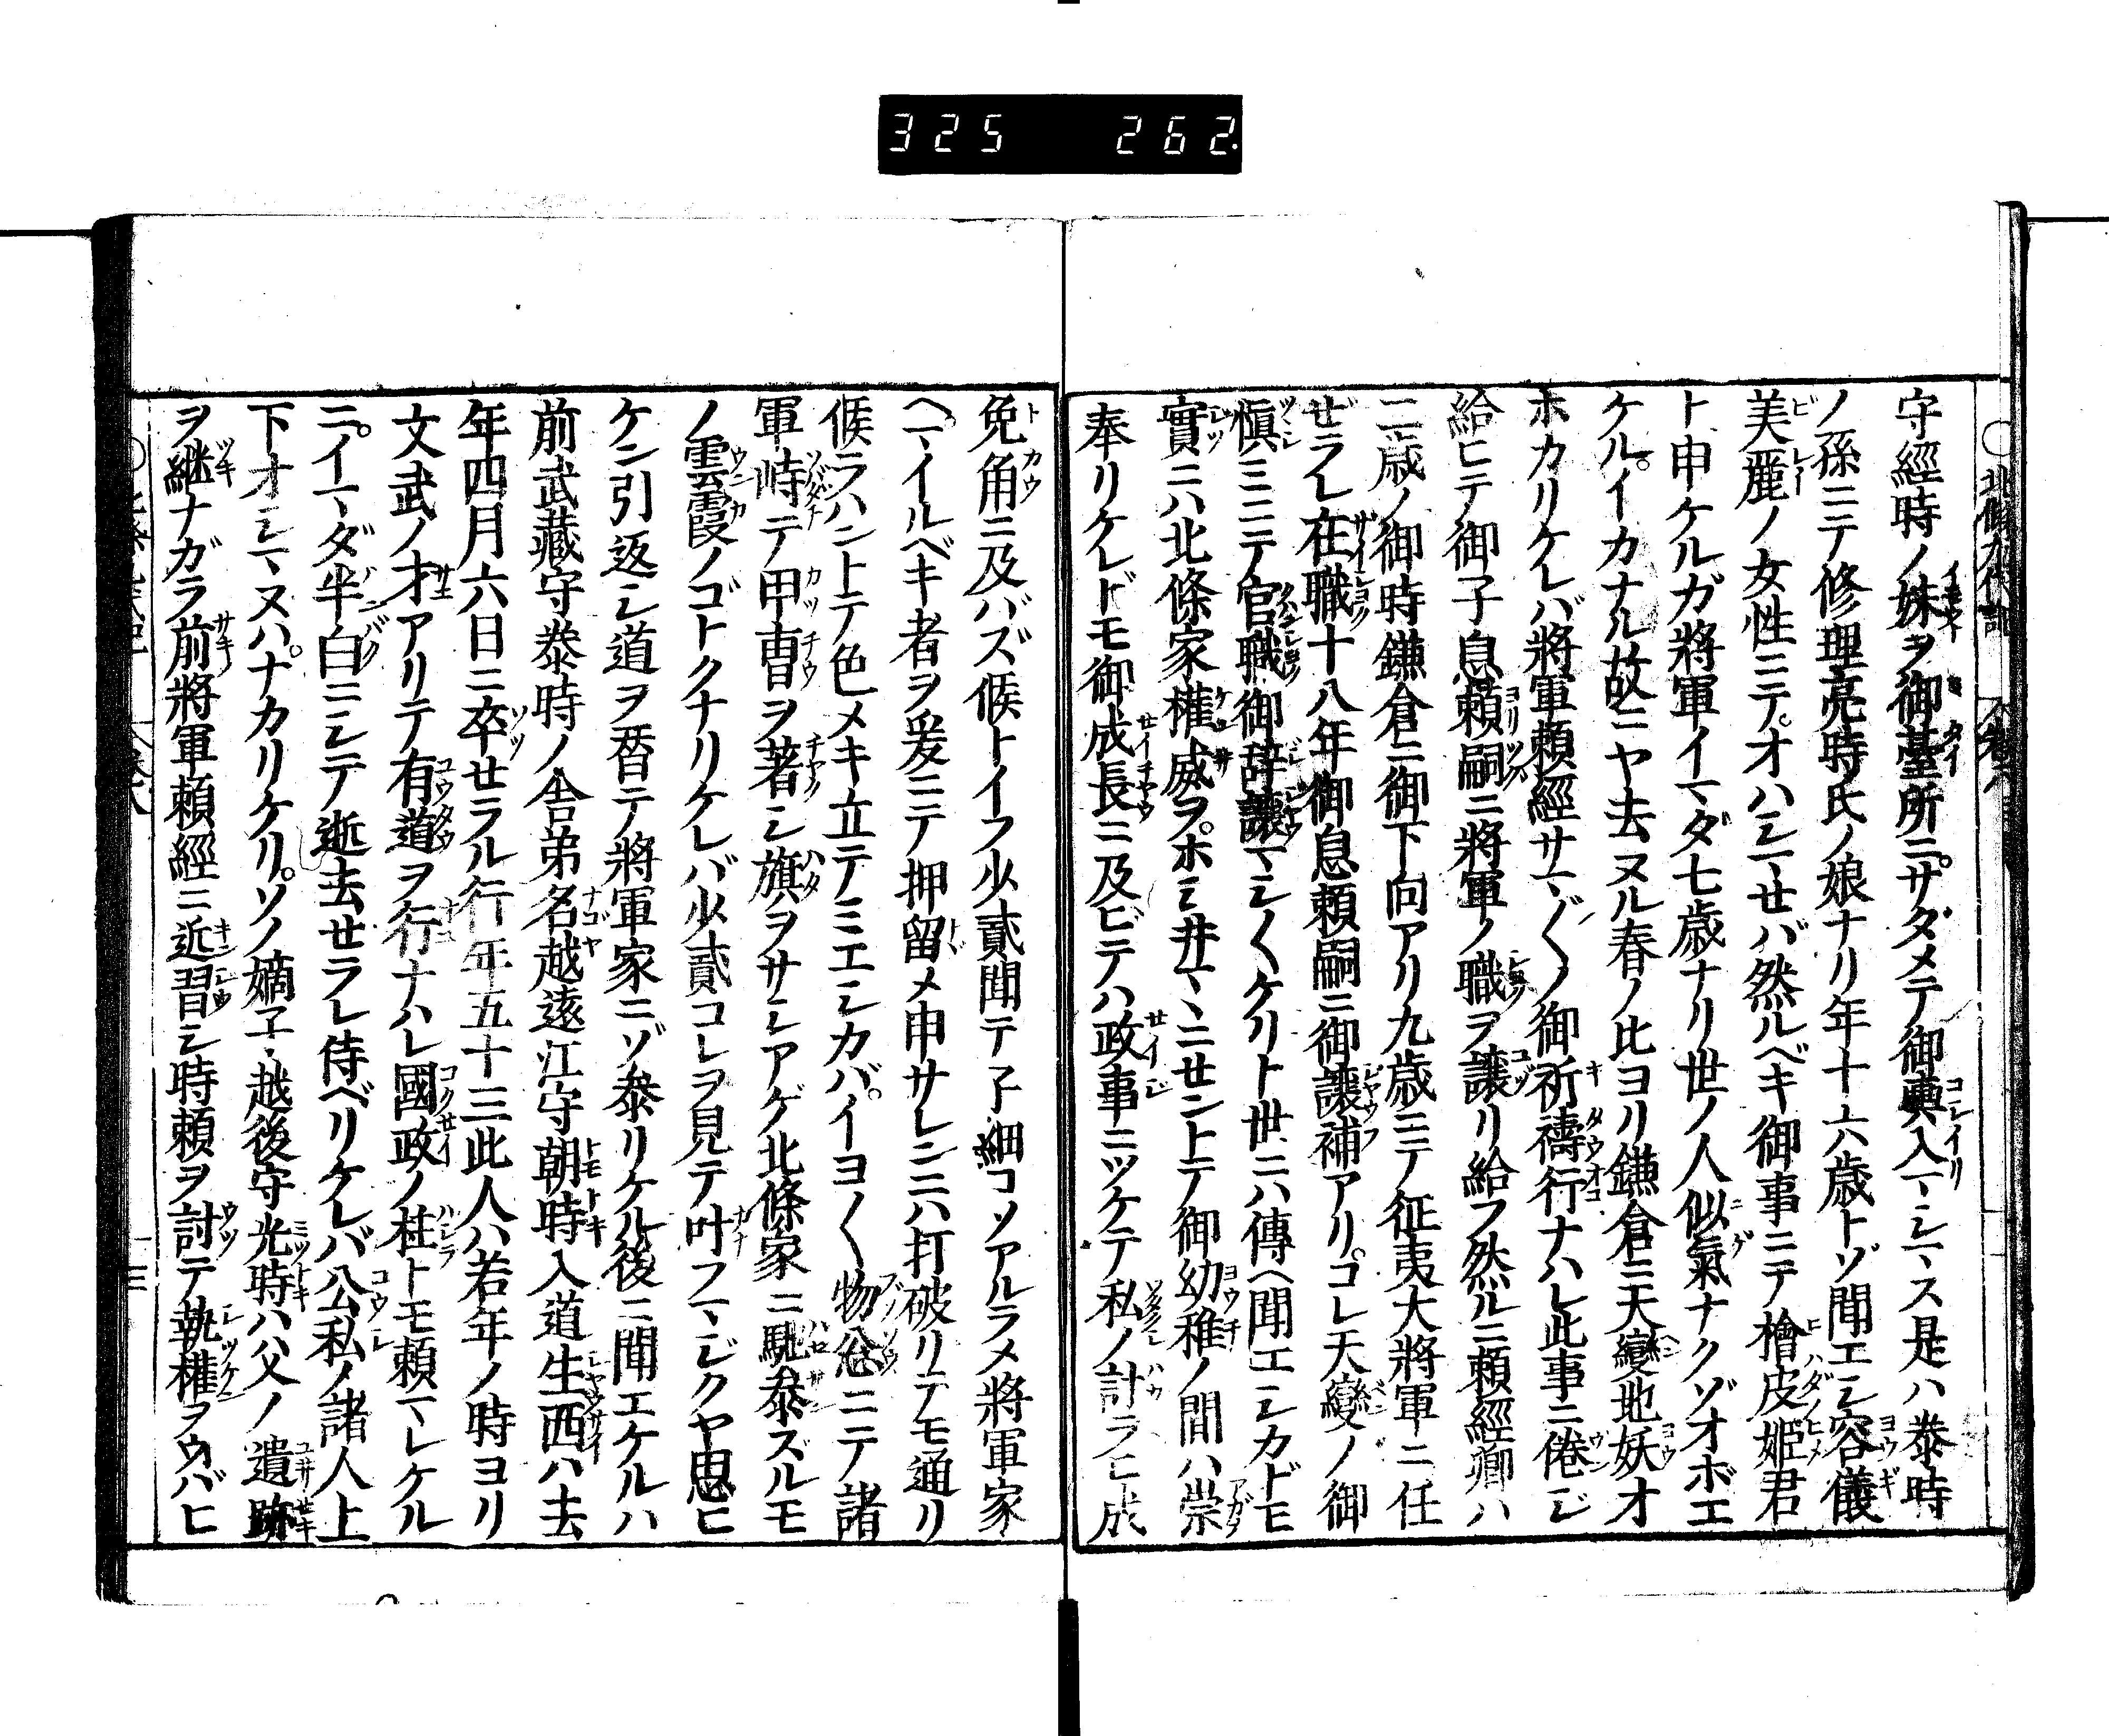 325 262.
守經時ノ妹ヲ御臺所ニサダメテ御輿入マシマス是ハ泰時
ノ孫ニテ修理亮時氏ノ娘ナリ年十六歳トゾ聞エシ容儀
美麗ノ女性ニテオハシマセバ然ルベキ御事ニテ檜皮姫君
ト申ケルガ將軍イマダ七歳ナリ世ノ人似氣ナクゾオボエ
ケル。イカナル故ニヤ去ヌル春ノ比ヨリ鎌倉ニ天變地妖オ
ホカリケレバ將軍頼經サマ〲ノ御祈禱行ナハレ此事ニ倦ジ
給ヒテ御子息頼嗣ニ將軍ノ職ヲ譲リ給フ然ルニ頼經卿ハ
二歳ノ御時鎌倉ニ御下向アリ九歳ニテ征夷大將軍ニ任
ゼラレ在職十八年御息頼嗣ニ御譲補アリ。コレ天變ノ御
愼ミニテ官職御辞譲マシ〱ケリト世ニハ傳ヘ聞エシカドモ
實ニハ北條家權威ヲホシヰマヽニセントテ御幼稚ノ間ハ崇
奉リケレドモ御成長ニ及ビテハ政事ニツケテ私ノ計ラヒ成
免角ニ及バズ候トイフ少貳聞テ子細コソアルラメ將軍家
ヘマイルベキ者ヲ爰ニテ押留メ申サレンニハ打破リテモ通リ
候ラハントテ色メキ立テミエシカバ。イヨ〱物忩ニテ諸
軍峙テ甲冑ヲ著シ旗ヲサシアゲ北條家ニ馳參ズルモ
ノ雲霞ノゴトクナリケレバ少貳コレヲ見テ叶フマジクヤ思ヒ
ケン引返シ道ヲ替テ將軍家ニゾ參リケル後ニ聞エケルハ
前武藏守泰時ノ舎弟名越遠江守朝時入道生西ハ去
年四月六日ニ卒セラル行年五十三此人ハ若年ノ時ヨリ
文武ノ才アリテ有道ヲ行ナハレ國政ノ柱トモ頼マレケル
ニ。イマダ半白ニシテ逝去セラレ侍ベリケレバ公私ノ諸人上
下オシマヌハ。ナカリケリ。ソノ嫡子越後守光時ハ父ノ遺跡
ヲ継ナガラ前將軍頼經ニ近習シ時頼ヲ討テ執權ヲウバヒ